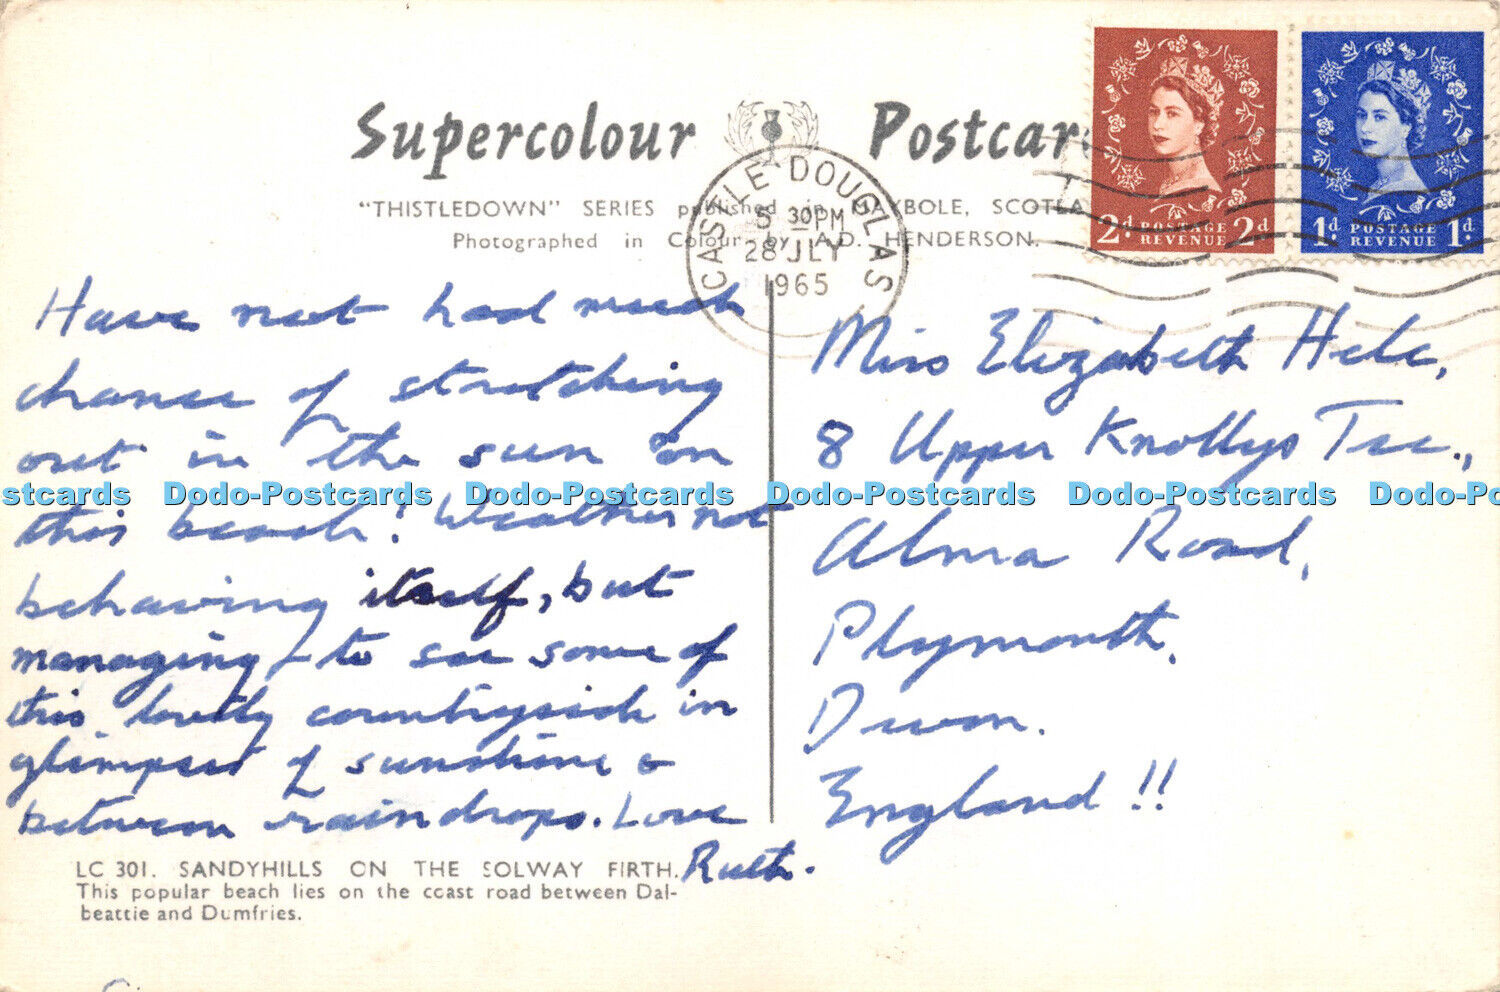 Supercolour Postcar
"THISTLEDOWN" SERIES published in MAYBOLE, SCOTLA
Photographed in Colour by A.D. HENDERSON.
CASTLE DOUGLAS
5 30PM
28 JLY
1965
2d POSTAGE REVENUE 2d
1d POSTAGE REVENUE 1d
Have not had much
chance of stretching
out in the sun on
this beach! Weather not
behaving itself, but
managing to see some of
this lovely countryside in
glimpses of sunshine &
between raindrops. Love
Ruth.
Miss Elizabeth Hele,
8 Upper Knollys Tce.,
Alma Road,
Plymouth,
Devon.
England!!
stcards Dodo-Postcards Dodo-Postcards Dodo-Postcards Dodo-Postcards Dodo-Po
LC 301. SANDYHILLS ON THE SOLWAY FIRTH.
This popular beach lies on the coast road between Dal-
beattie and Dumfries.